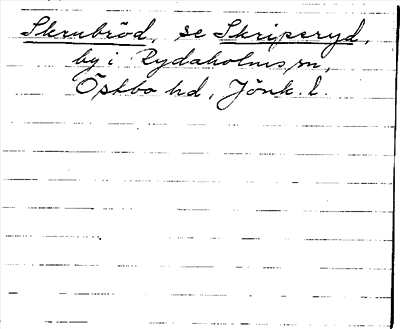 Skrubröd, se Skripsryd,
by i Rydaholms sn,
Östbo hd, Jönk. l.